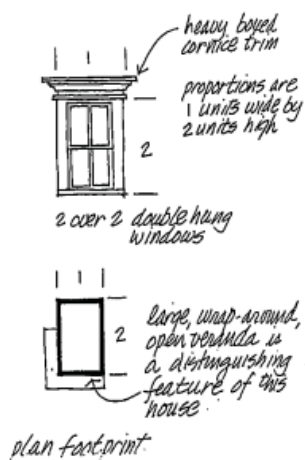 heavy boxed
cornice trim
1
proportions are
1 units wide by
2 units high
2
2 over 2 double hung
windows
1
2
large, wrap-around,
open veranda is
a distinguishing
feature of this
house.
plan footprint